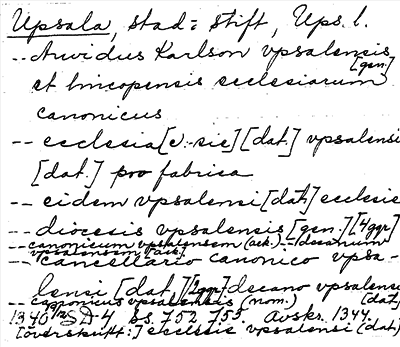 Upsala, stad = stift, Ups. l.
-- Arvidus Karlson vpsalensis
[gen.]
et lincopensis ecclesiarum
canonicus
-- ecclesia [e. sic] [dat.] vpsalensi
[dat.] pro fabrica
-- eidem vpsalensi [dat.] ecclesie
-- diocesis vpsalensis [gen.] [4ggr]
-- canonicum vpsalensem (ack.) -- decanum
vpsalensem [ack.]
-- cancellario canonico vpsa-
lensi [dat.] [2ggr] decano vpsalensi
-- canonicus vpsalensis (nom.) [dat.]
1340 SD 4 ss. 752, 755. Avskr. 1344.
[överskrift:] ecclesie vpsalensi (dat.)